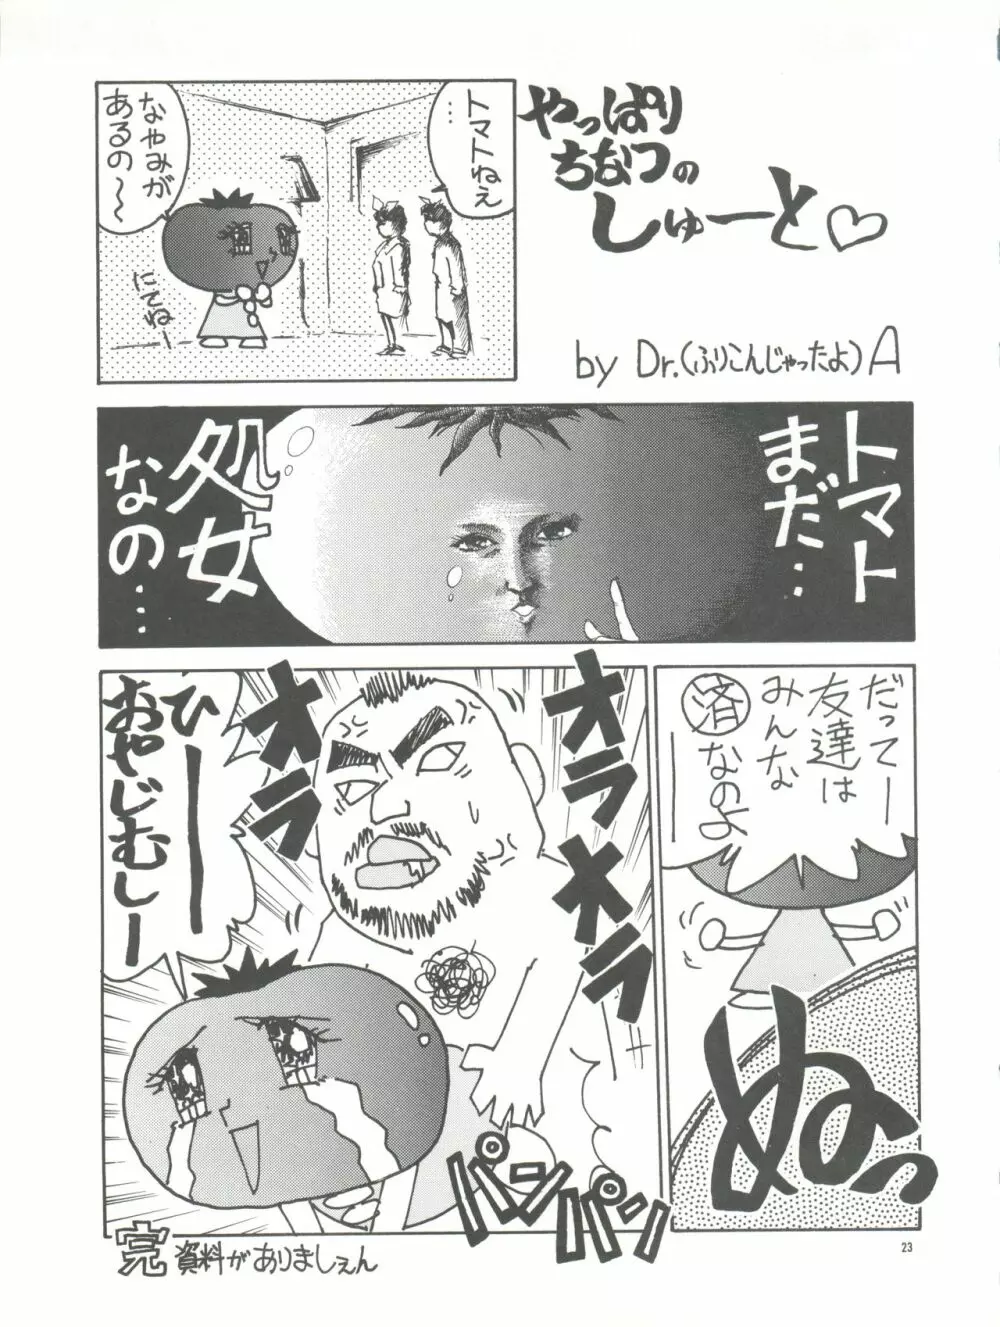 やっぱり
ちなつの
しゅーと♡
by Dr.(ふりこんじゃったよ)A
トマトねえ
…
なやみが
あるの〜
にてねー
トマト
まだ…
処女
なの…
だってー
友達は
みんな
済なのよ
ーー
ぬっ
オラオラ
オラオラ
ひーー
おやじむしー
パンパン
完 資料がありましぇん
23